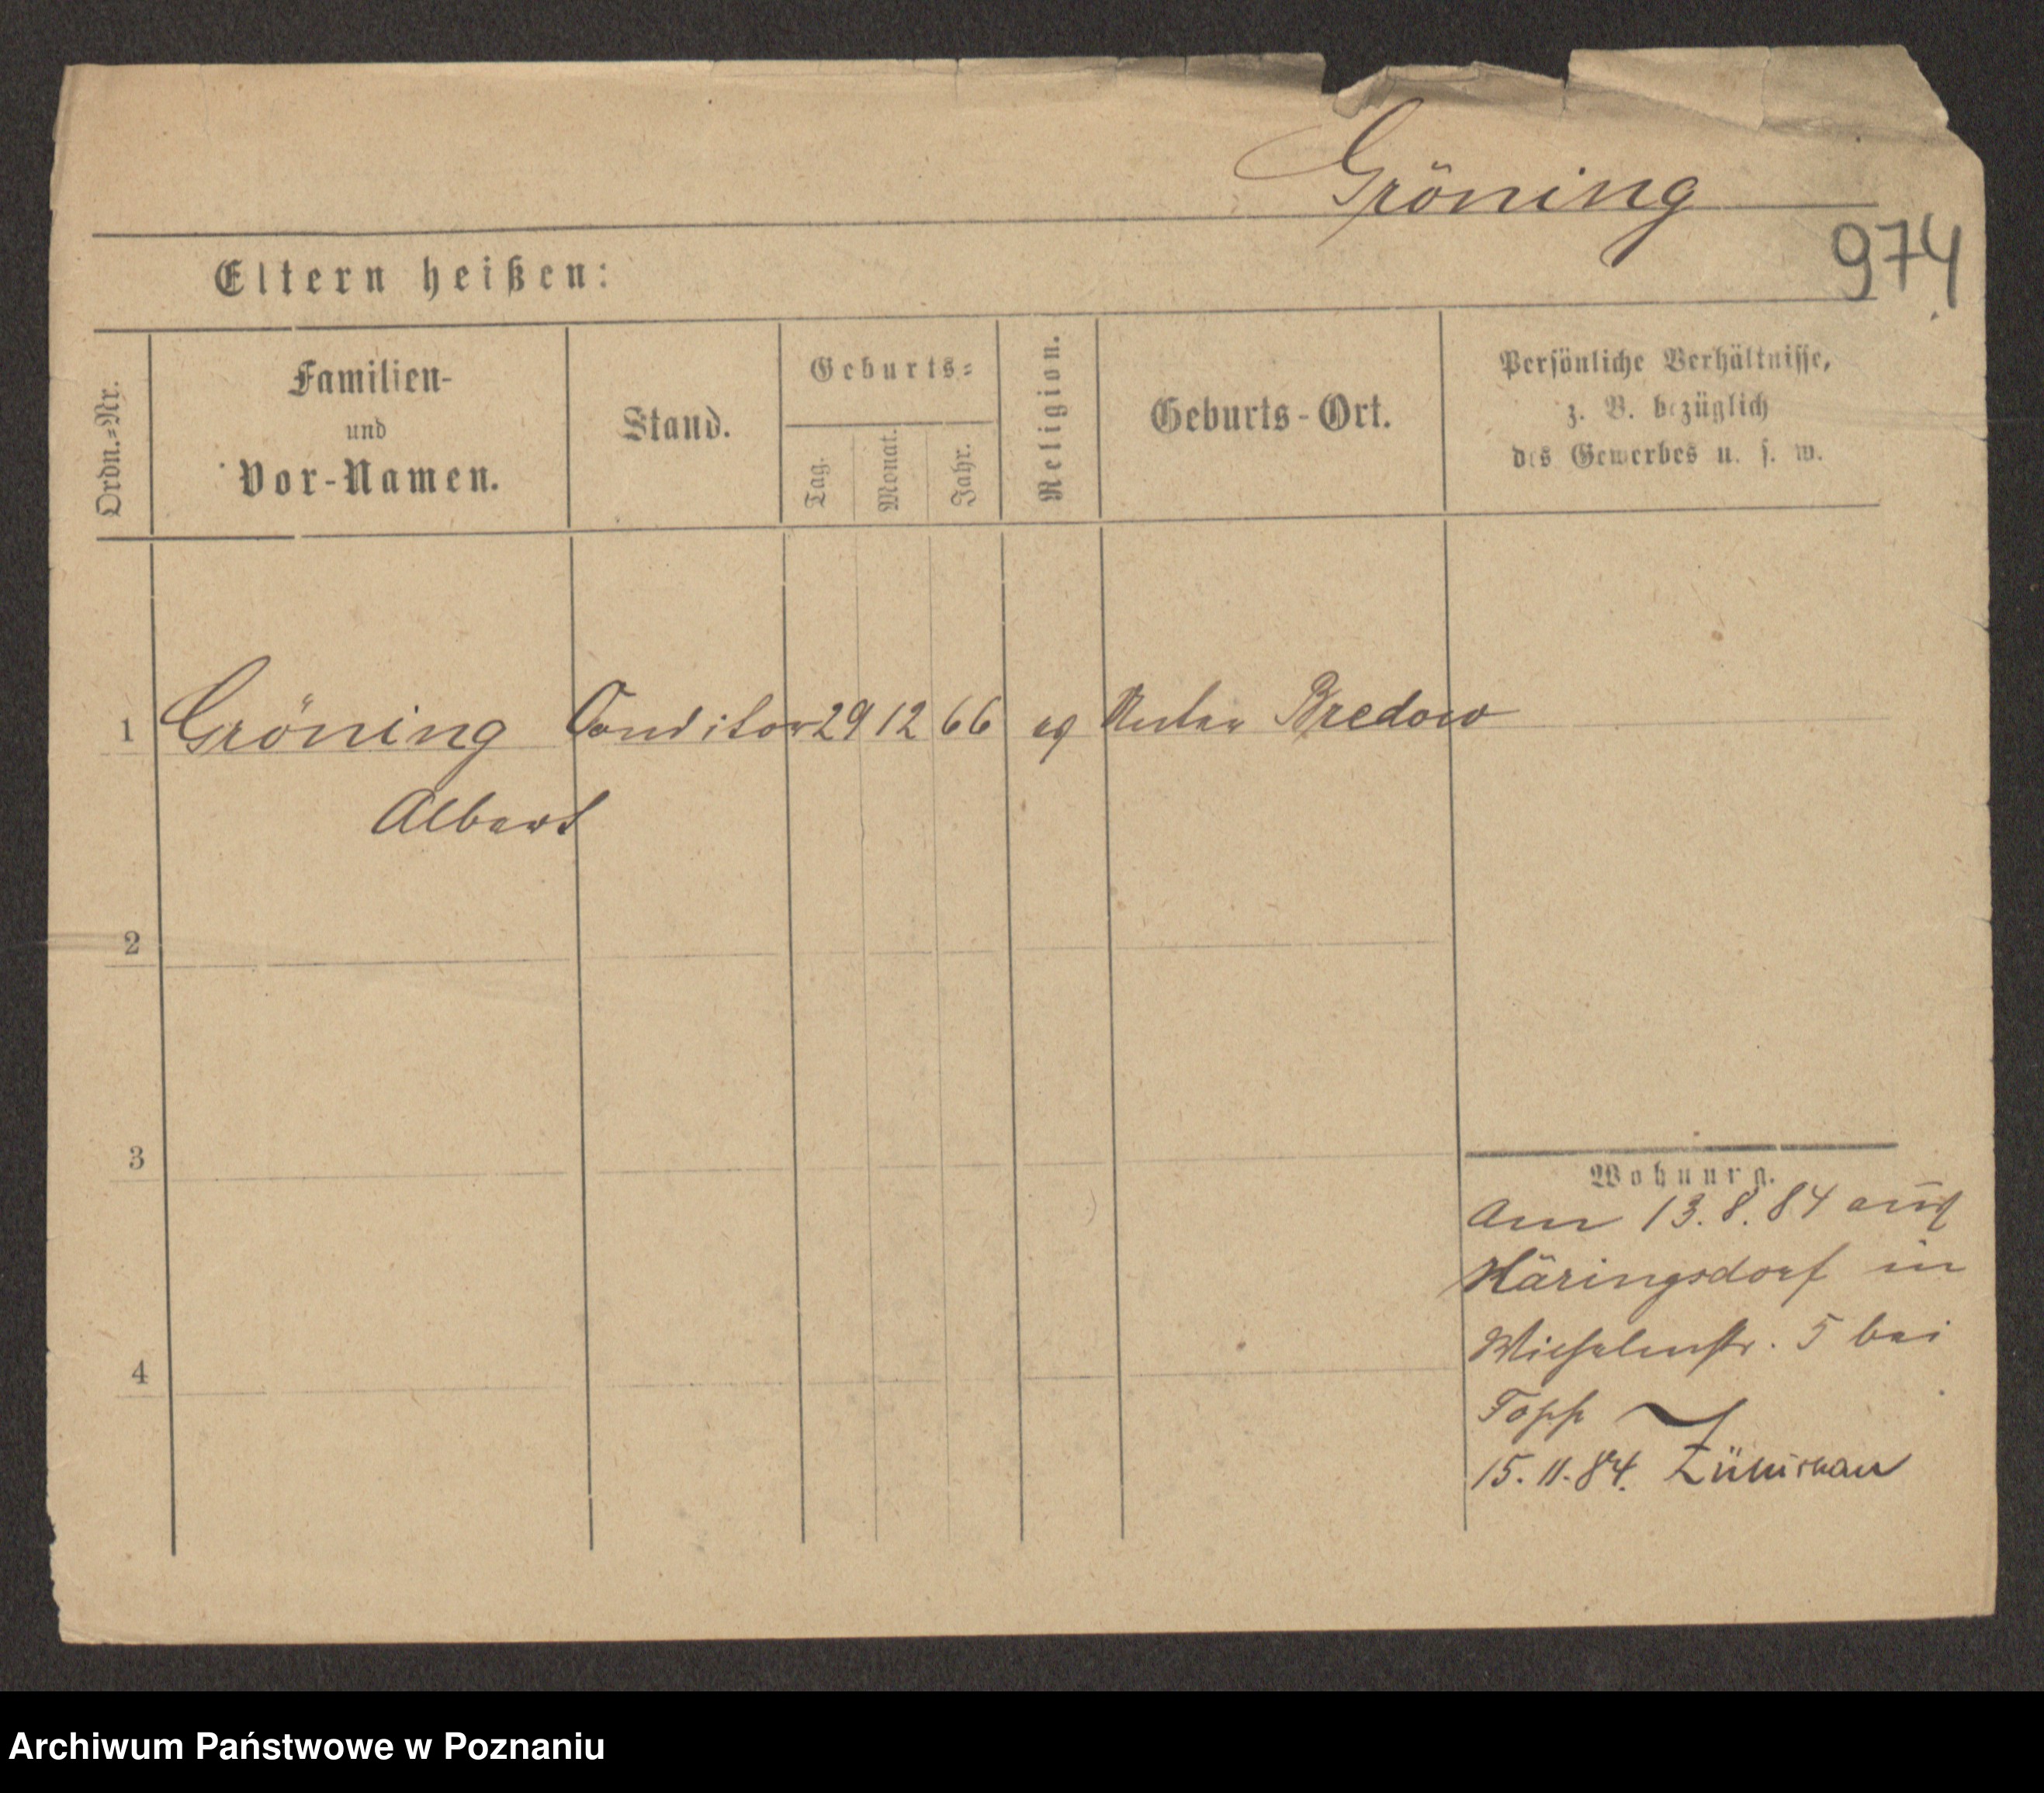 Gröning
974
Eltern heißen:
Ordn.=Nr.
Familien-
und
Vor-Namen.
Stand.
Geburts=
Tag.
Monat.
Jahr.
Religion.
Geburts-Ort.
Persönliche Verhältnisse,
z. B. bezüglich
des Gewerbes u. s. w.
1 Gröning Conditor 29 12 66 Bredow
Albert
2
3
4
Wohnung.
Am 13.8.84 aus
Häringsdorf in
5 bei
Topp
15.11.84.
Archiwum Państwowe w Poznaniu